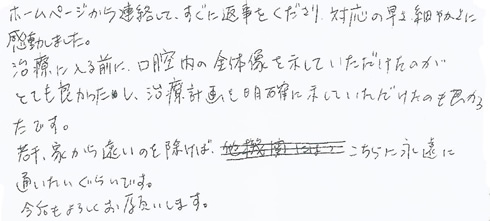 ホームページから連絡して、すぐに返事をくださり、対応の早さ細やかさに
感動しました。
治療に入る前に、口腔内の全体像を示していただけたのが
とても良かったし、治療計画も明確に示していただけたのも良かっ
たです。
若干、家から遠いのを除けば、こちらに永遠に
通いたいぐらいです。
今后もよろしくお願いします。